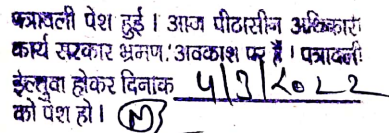 पत्रावली पेश हुई। आज पीठासीन अधिकारी
कार्य सरकार भ्रमण/अवकाश पर है। पत्रावली
ईल्तुवा होकर दिनाक 4/3/2022
को पेश हो।